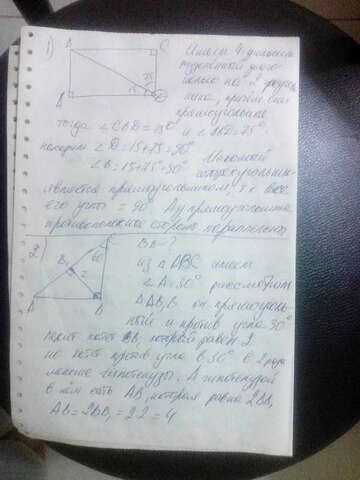 1)
B
C
75
15
A
D
Имеем 4-угольник
разделенный диаго-
налью на 2 треуголь-
ника, причем они
прямоугольные
тогда ∠CBD=15° и ∠ABD=75°.
получим ∠D=15+75=90°
∠B=15+75=90° Искомый
четырехугольник
является прямоугольником, т.к. все
его углы = 90°. А у прямоугольника
противоположные стороны параллельны
2)
C
60
B₁
2
A
B
BB-?
из △ABC имеем
∠A=30° рассмотрим
△ABB₁ он прямоуголь-
ный и против угла 30°
лежит катет BB₁ который равен 2
но катет против угла в 30° в 2 раза
меньше гипотенузы. А гипотенузой
в нём есть AB, которая равна 2BB₁
AB=2BB₁=2·2=4